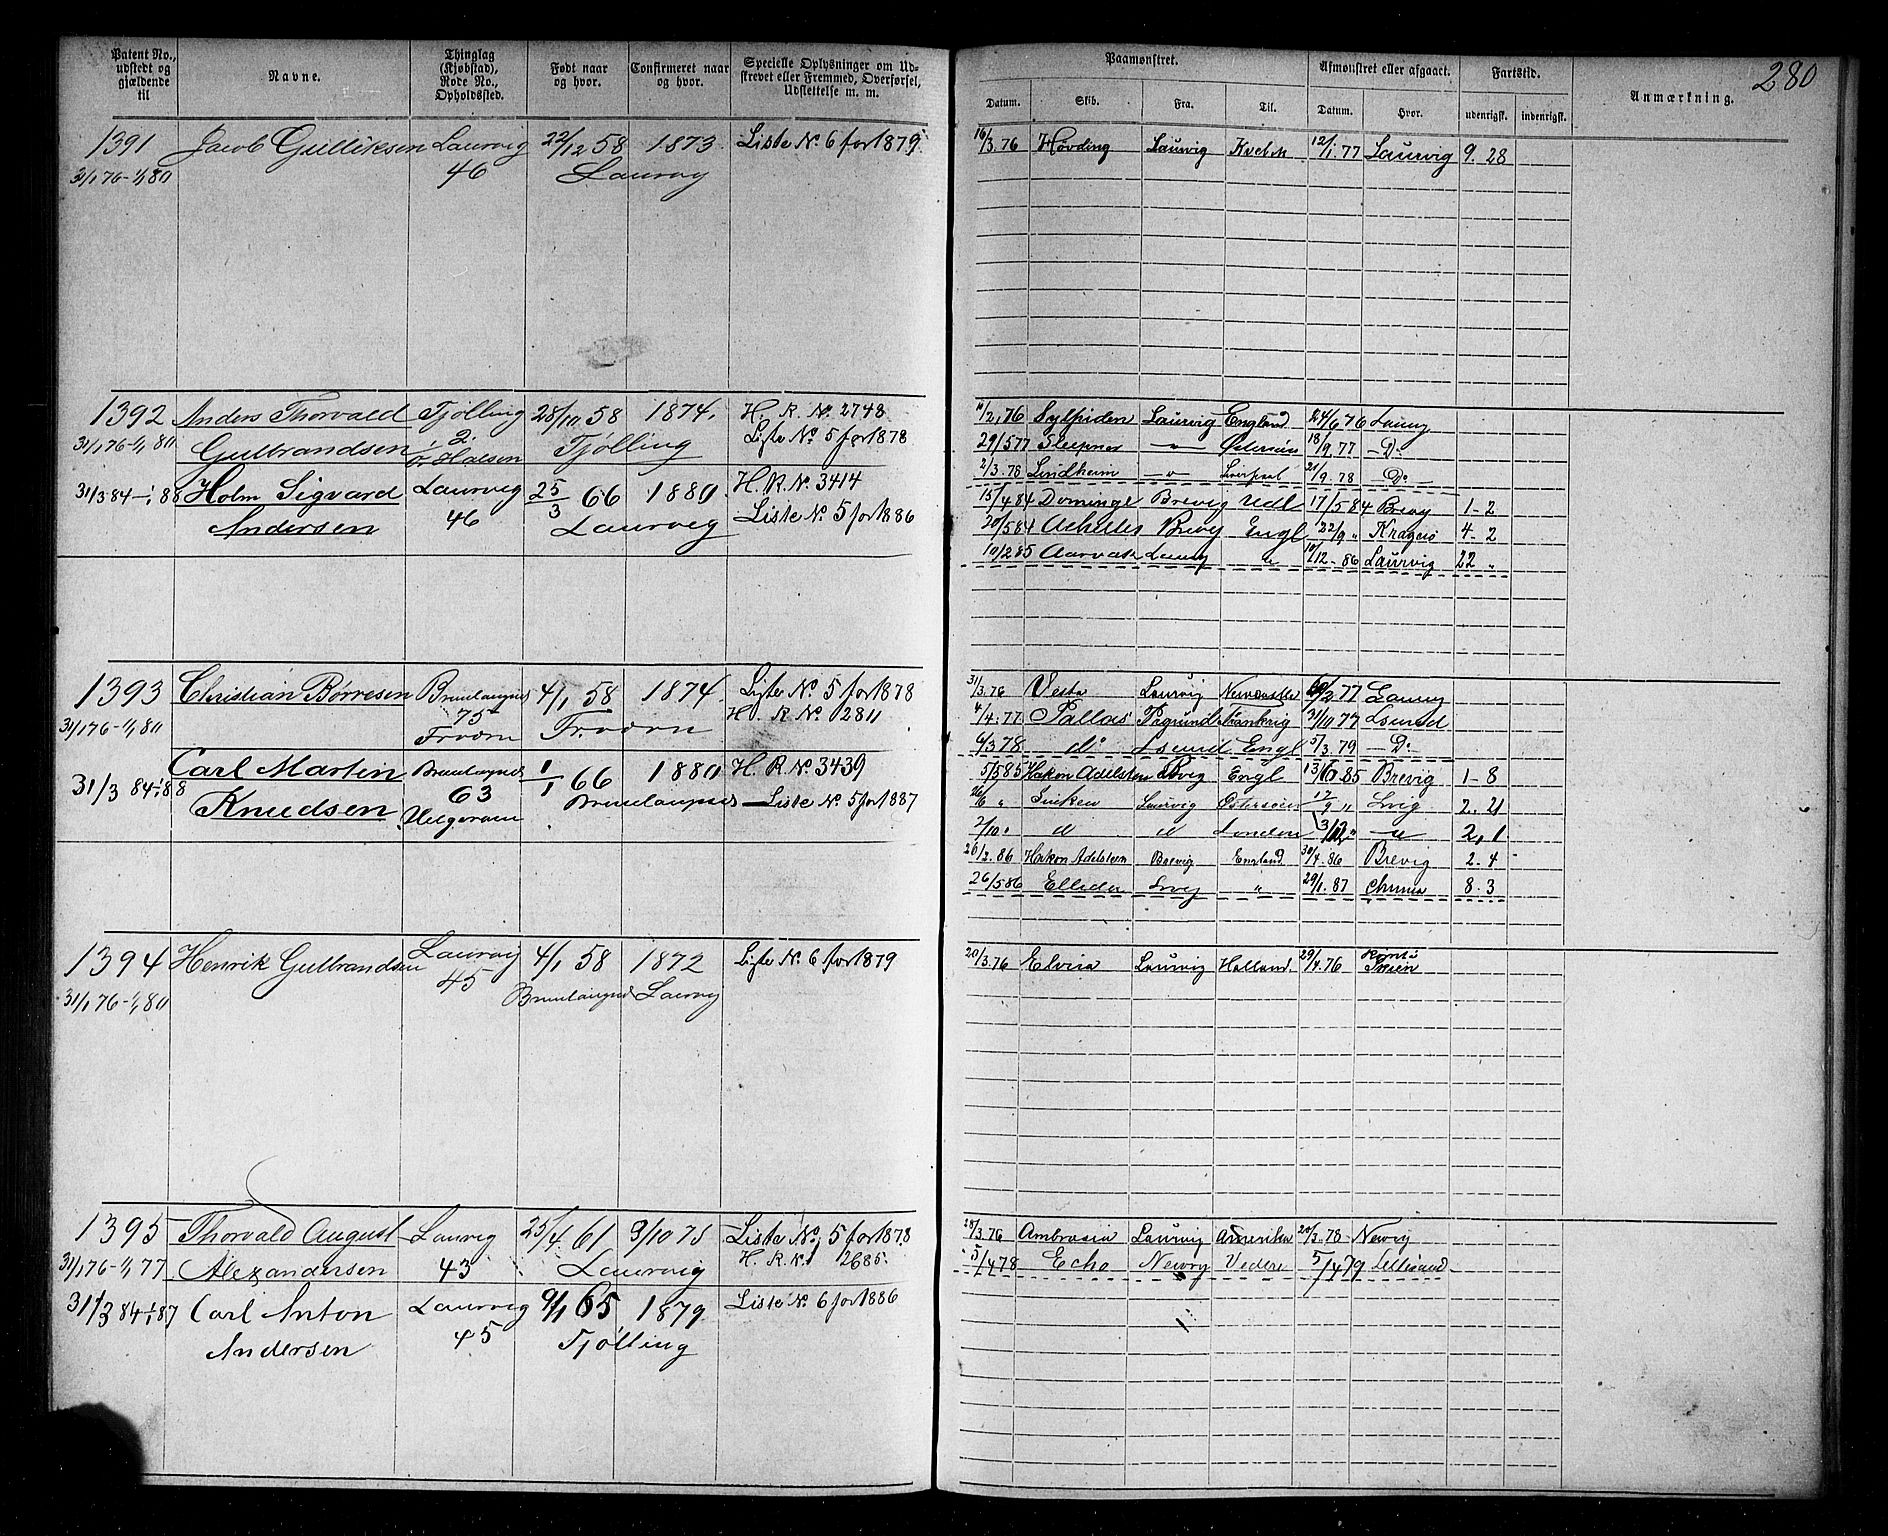 Patent No., udstedt og gjældende til
Navne.
Thinglag (Kjøbstad), Rode No., Opholdssted.
Født naar og hvor.
Confirmeret naar og hvor.
Specielle Oplysninger om Udskrevet eller Fremmed, Overførsel, Udslettelse m. m.
Paamønstret.
Datum. Skib. Fra. Til.
Afmønstret eller afgaaet.
Datum. Hvor.
Fartstid.
udenrigsk. indenrigsk.
Anmærkning.
280
1391 Jacob Gulliksen Laurvig 22/12 58 1873. Liste No. 6 for 1879.
31/1 76-1/1 80 46 Laurvig
16/3.76 Høvding Laurvig 12/1.77 Laurvig 9. 28
1392 Anders Thorvald Tjølling 28/10 58 1874. H. R. No. 2748
31/1 76-1/1 80 Gulbrandsen 2. Ø. Halsen Tjølling Liste No. 5 for 1878
11/2.76 Sylphiden Laurvig England 24/6 76 Laurvig
29/5 77 Sleipner —"— Østersøen 18/9.77 —Do
2/3.78 Lindheim —"— Liverpool 21/9.78 —Do—
31/3 84-1/1 88 Holm Sigvard Laurvig 25/3 66 1880. H. R. No. 3414
Andersen 46 Laurvig Liste No. 5 for 1886
15/4 84 Domingo Brevig Udl 17/5 84 Brevig 1-2
20/5 84 Achilles Brevig Engl 22/9 " Kragerø 4-2
10/2 85 Laurvig " 10/12.86 Laurvig 22 "
1393 Christian Børresen Brunlangnæs 4/1 58 1874. Liste No. 5 for 1878
31/1 76-1/1 80 75 Fredværn H. R. No. 2811
31/3.76 Vesta Laurvig Newcastle 2.77 Laurvig
4/4.77 Pallas Pogrund 31/10 77
6/3 78 do Engl 5/3.79 —Do
31/3 84-1/1 88 Carl Martin Brunlangnæs 1/1 66 1880 H. R. No. 3439
Knudsen 63 Helgeroen Brunlangnæs Liste No. 5 for 1887
5/5 85 Hakon Adelsten Bvig Engl 13/6 85 Brevig 1-8
26/6 " Sirken Laurvig Østersøen 17/9 " Lvig 2. 21
7/10 " d d London 3/12 " —d 2, 1
26/2.86 Hakon Adelsteen Brevig England 30/4.86 Brevig 2-4
26/5 86 Ellida Lvig " 29/1.87 8.3
1394 Henrik Gulbrandsen Laurvig 4/1 58 1872 Liste No. 6 for 1879
31/1 76-1/1 80 45 Brunlangnæs Laurvig
20/3.76 Elvira Laurvig Holland. 29/4.76 Rømt i Skien
1395 Thorvald August Laurvig 25/4 61 3/10 75 Liste No. 5 for 1878
31/1 76-1/1 77 Alexandersen 43 Laurvig H. R. No. 2685.
28/3.76 Ambrosia Laurvig Amerika 20/3.78 Newry
5/4 78 Echo Newry 5/4 79 Lillesand
31/3 84-1/1 87 Carl Anton Laurvig 9/1 65 1879. Liste No. 6 for 1886
Andersen 45 Tjølling